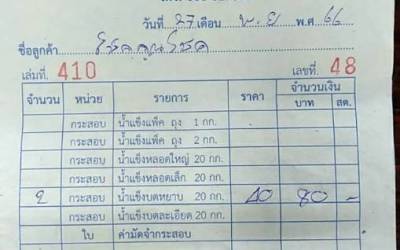 วันที่ 27 เดือน พ.ย พ.ศ 66
ชื่อลูกค้า โชคคูณโชค
เล่มที่. 410 เลขที่. 48
จำนวน หน่วย รายการ ราคา จำนวนเงิน
บาท สต.
กระสอบ น้ำแข็งแพ็ค ถุง 1 กก.
กระสอบ น้ำแข็งแพ็ค ถุง 2 กก.
กระสอบ น้ำแข็งหลอดใหญ่ 20 กก.
กระสอบ น้ำแข็งหลอดเล็ก 20 กก.
2 กระสอบ น้ำแข็งบดหยาบ 20 กก. 40 80 -
กระสอบ น้ำแข็งบดละเอียด 20 กก.
ใบ ค่ามัดจำกระสอบ